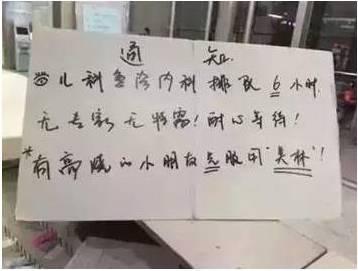 通知
儿科急诊内科排队6小时.
无专家无特需!耐心等待!
*有高烧的小朋友先服用“美林”!